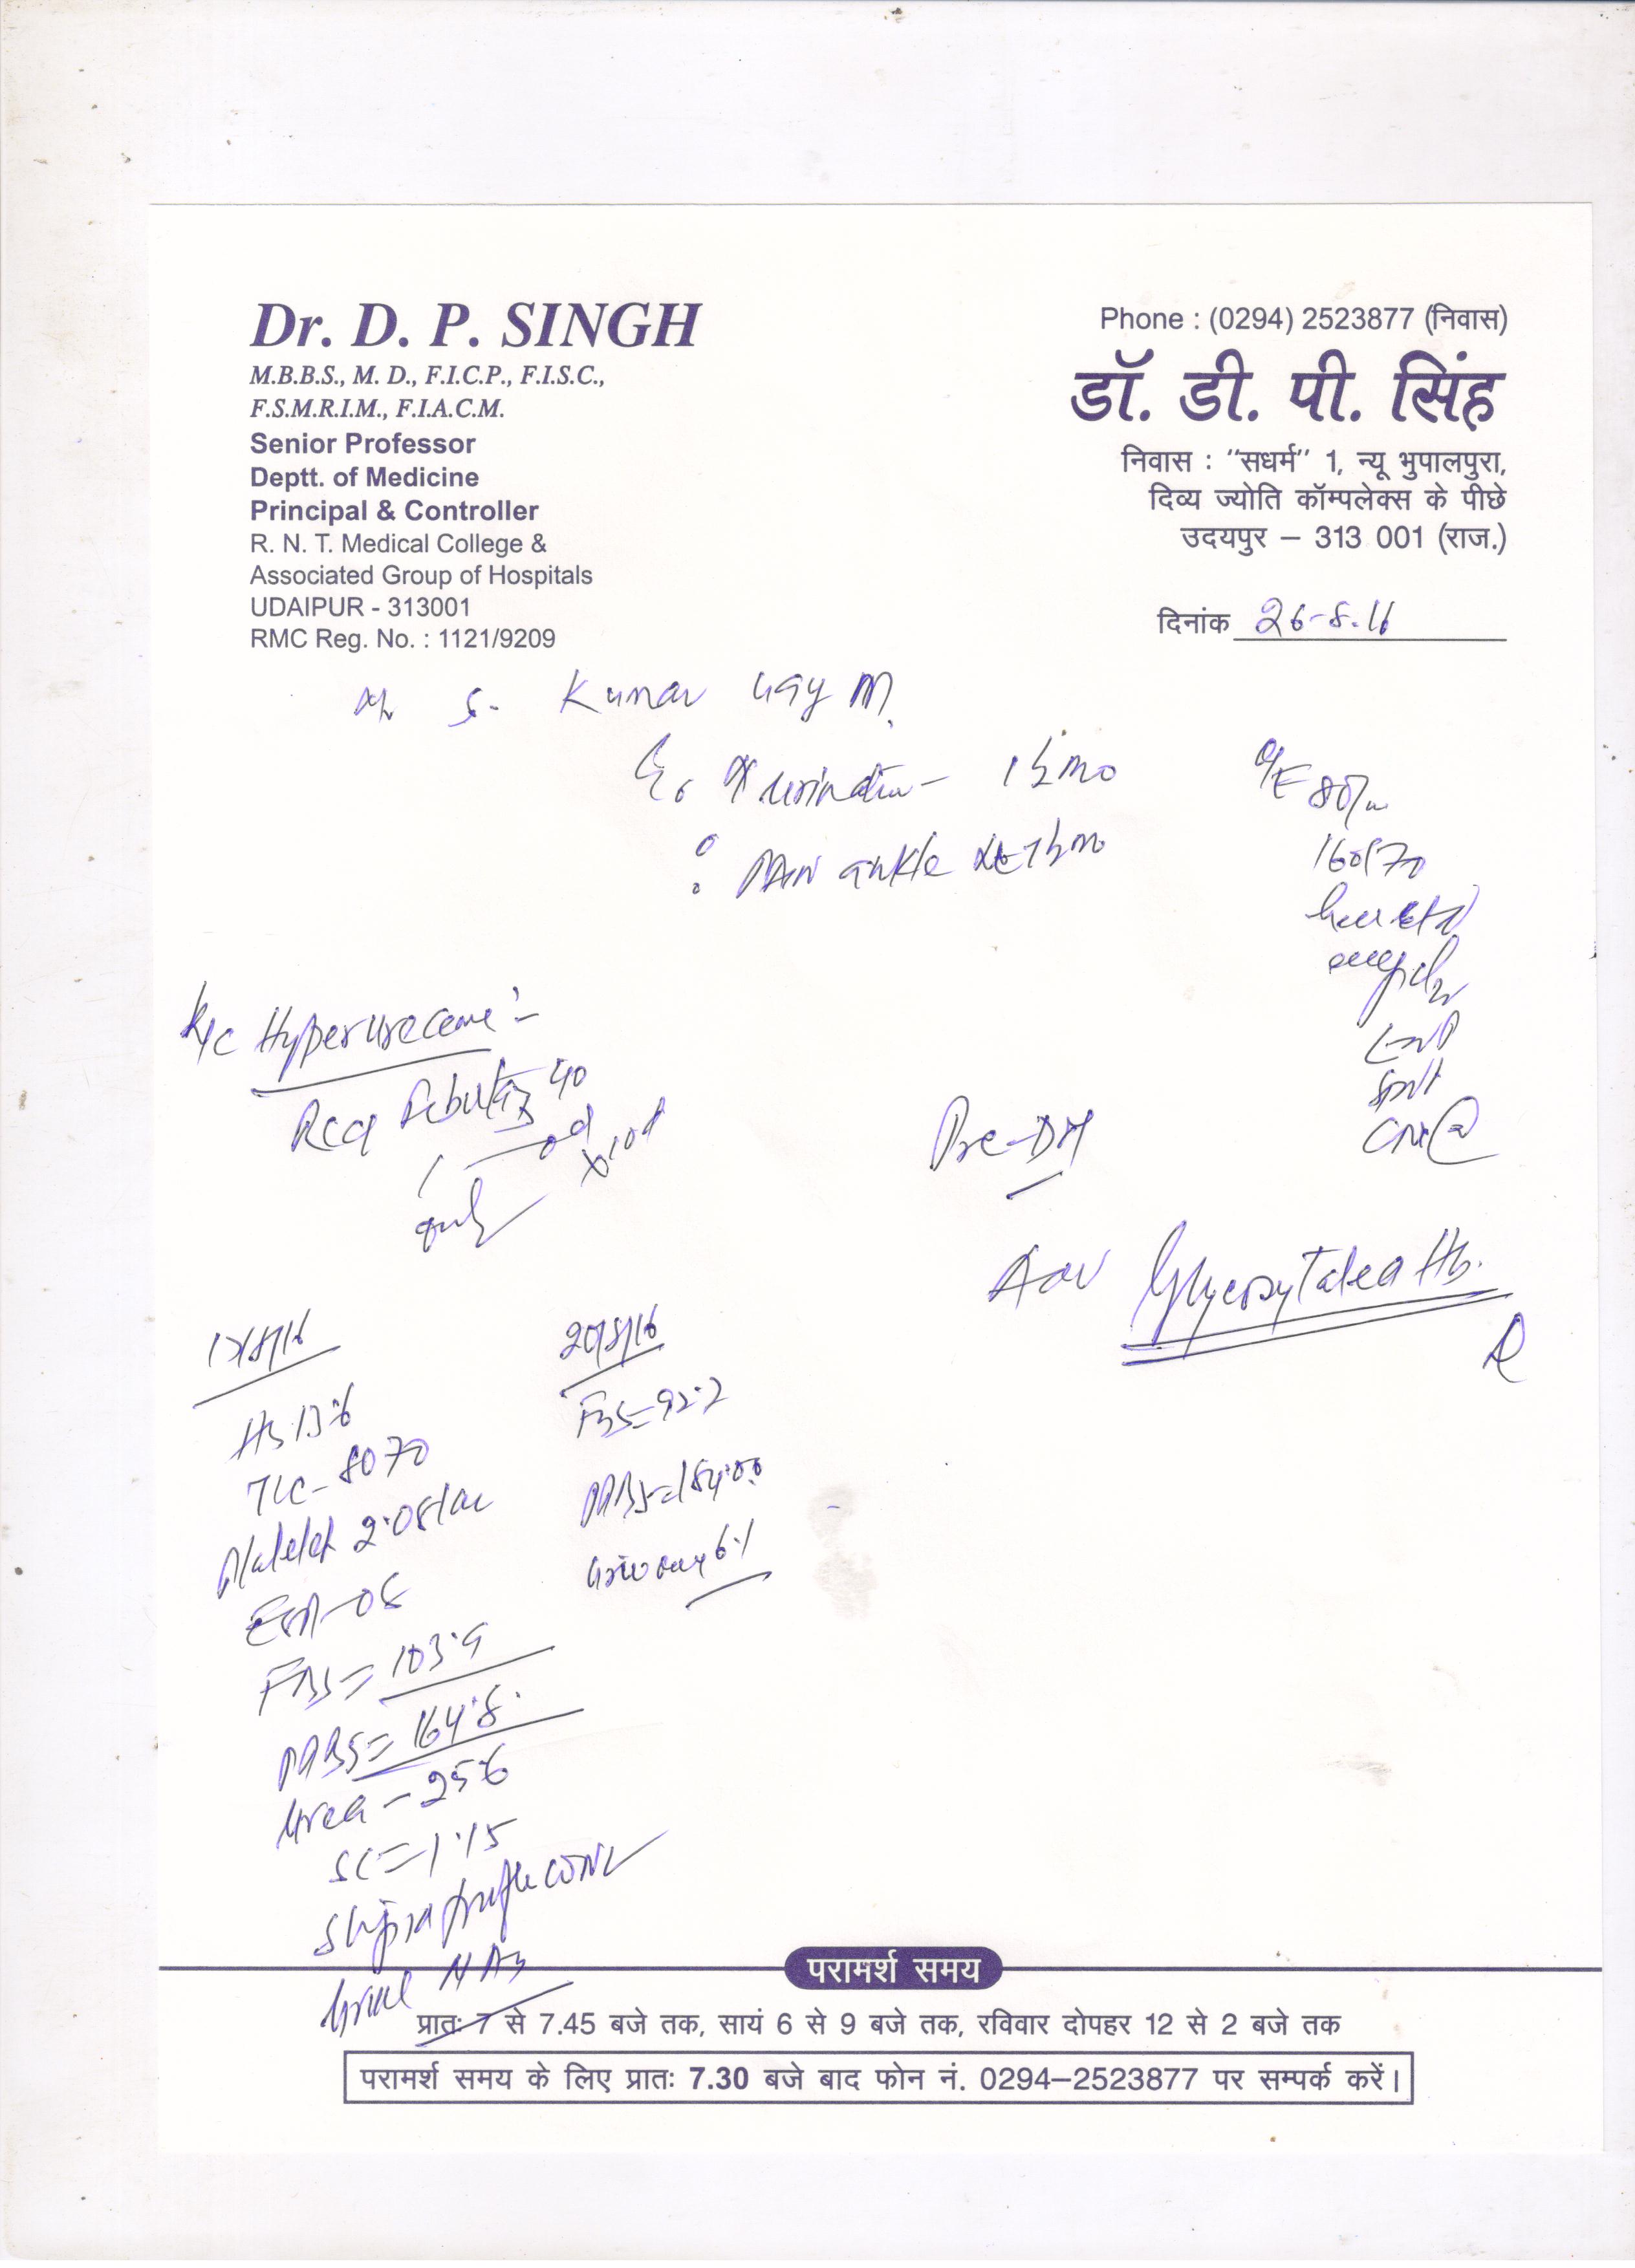 Dr. D. P. SINGH
M.B.B.S., M. D., F.I.C.P., F.I.S.C.,
F.S.M.R.I.M., F.I.A.C.M.
Senior Professor
Deptt. of Medicine
Principal & Controller
R. N. T. Medical College &
Associated Group of Hospitals
UDAIPUR - 313001
RMC Reg. No. : 1121/9209
Phone : (0294) 2523877 (निवास)
डॉ. डी. पी. सिंह
निवास : “सधर्म” 1, न्यू भुपालपुरा,
दिव्य ज्योति कॉम्पलेक्स के पीछे
उदयपुर – 313 001 (राज.)
दिनांक 26-8-16
S. Kumar 49y M.
urination - 1½ mo
Pain ankle
O/E 80/m
160/70
K/c Hyperurecemi :-
40
od x 10d
Pre-DM
Adv Glycosytated Hb.
17/8/16
Hb 13.6
TLC - 8070
Platelet 2.08 lac
ESR - 08
FBS = 103.9
PPBS = 164.8
Urea - 25.6
SC = 1.15
profile WNL
Urine NAD
20/8/16
FBS = 92.2
PPBS = 184.00
6.1
परामर्श समय
प्रातः 7 से 7.45 बजे तक, सायं 6 से 9 बजे तक, रविवार दोपहर 12 से 2 बजे तक
परामर्श समय के लिए प्रातः 7.30 बजे बाद फोन नं. 0294–2523877 पर सम्पर्क करें।